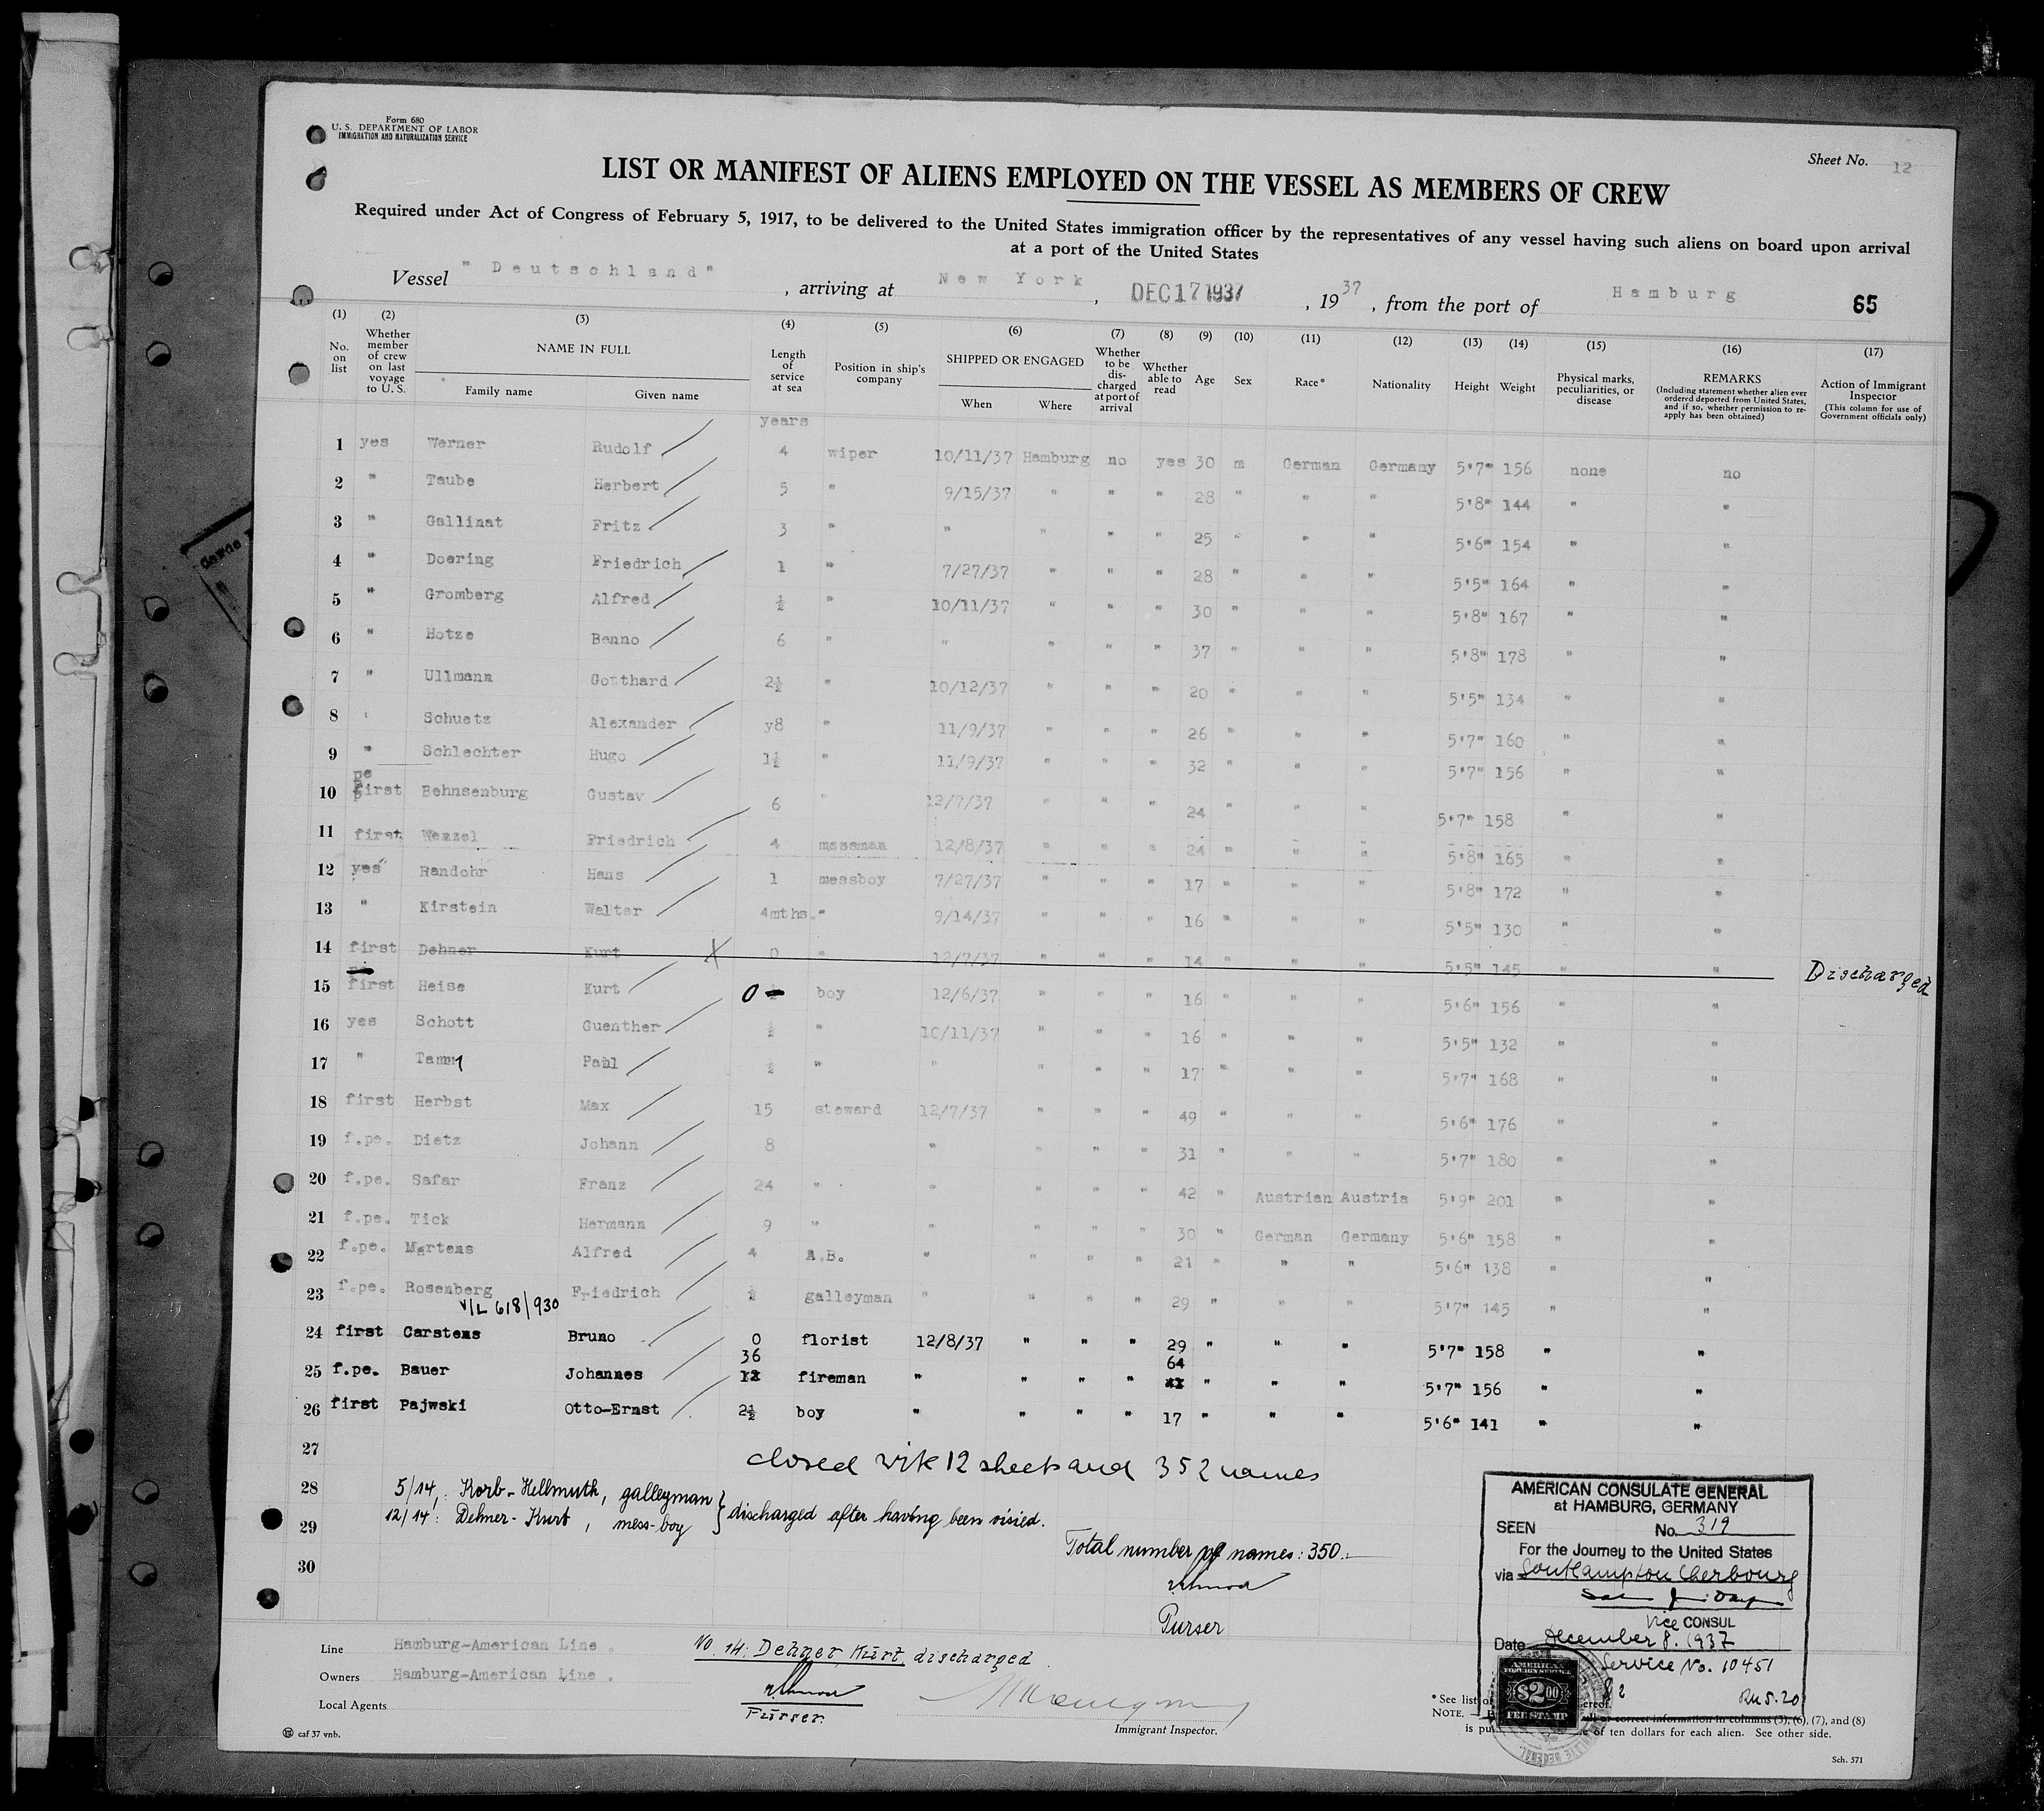 Form 680
U. S. DEPARTMENT OF LABOR
IMMIGRATION AND NATURALIZATION SERVICE
Sheet No. 12
LIST OR MANIFEST OF ALIENS EMPLOYED ON THE VESSEL AS MEMBERS OF CREW
Required under Act of Congress of February 5, 1917, to be delivered to the United States immigration officer by the representatives of any vessel having such aliens on board upon arrival
at a port of the United States
Vessel "Deutschland", arriving at New York, DEC 17 1937, 1937, from the port of Hamburg 65
(1) No. on list
(2) Whether member of crew on last voyage to U. S.
(3) NAME IN FULL Family name Given name
(4) Length of service at sea
(5) Position in ship's company
(6) SHIPPED OR ENGAGED When Where
(7) Whether to be discharged at port of arrival
(8) Whether able to read
(9) Age
(10) Sex
(11) Race*
(12) Nationality
(13) Height
(14) Weight
(15) Physical marks, peculiarities, or disease
(16) REMARKS (Including statement whether alien ever ordered deported from United States, and if so, whether permission to reapply has been obtained)
(17) Action of Immigrant Inspector (This column for use of Government officials only)
years
1 yes Werner Rudolf 4 wiper 10/11/37 Hamburg no yes 30 m German Germany 5'7" 156 none no
2 " Taube Herbert 5 " 9/15/37 " " " 28 " " " 5'8" 144 " "
3 " Gallinat Fritz 3 " " " " " 25 " " " 5'6" 154 " "
4 " Doering Friedrich 1 " 7/27/37 " " " 28 " " " 5'5" 164 " "
5 " Gromberg Alfred ½ " 10/11/37 " " " 30 " " " 5'8" 167 " "
6 " Hotze Benno 6 " " " " " 37 " " " 5'8" 178 " "
7 " Ullmann Gotthard 2½ " 10/12/37 " " " 20 " " " 5'5" 134 " "
8 " Schuetz Alexander y8 " 11/9/37 " " " 26 " " " 5'7" 160 " "
9 " Schlechter Hugo 1½ " 11/9/37 " " " 32 " " " 5'7" 156 " "
pe
10 first Behnsenburg Gustav 6 " 12/7/37 " " " 24 " " " 5'7" 158 " "
11 first Wenzel Friedrich 4 messman 12/8/37 " " " 24 " " " 5'8" 165 " "
12 yes Randohr Hans 1 messboy 7/27/37 " " " 17 " " " 5'8" 172 " "
13 " Kirstein Walter 4mths. " 9/14/37 " " " 16 " " " 5'5" 130 " "
14 first Dehner Kurt X 0 " 12/7/37 " " " 14 " " " 5'5" 145 " " Discharged
15 first Heise Kurt 0 boy 12/6/37 " " " 16 " " " 5'6" 156 " "
16 yes Schott Guenther ½ " 10/11/37 " " " 16 " " " 5'5" 132 " "
17 " Tamm Paul ½ " " " " " 17 " " " 5'7" 168 " "
18 first Herbst Max 15 steward 12/7/37 " " " 49 " " " 5'6" 176 " "
19 f.pe. Dietz Johann 8 " " " " 31 " " " 5'7" 180 " "
20 f.pe. Safar Franz 24 " " " " " 42 " Austrian Austria 5'9" 201 " "
21 f.pe. Tick Hermann 9 " " " " " 30 " German Germany 5'6" 158 " "
22 f.pe. Martens Alfred 4 A.B. " " " " 21 " " " 5'6" 138 " "
23 f.pe. Rosenberg Friedrich ½ galleyman " " " " 29 " " " 5'7" 145 " "
V/L 618/930
24 first Carstens Bruno 0 florist 12/8/37 " " " 29 " " " 5'7" 158 " "
36 64
25 f.pe. Bauer Johannes 12 fireman " " " " " " " 5'7" 156 " "
26 first Pajwski Otto-Ernst 2½ boy " " " " 17 " " " 5'6" 141 " "
27
closed with 12 sheets and 352 names
28 5/14: Korb-Hellmuth, galleyman
29 12/14: Dehner-Kurt, mess-boy } discharged after having been visied.
Total number of names: 350.
30
Purser
AMERICAN CONSULATE GENERAL
at HAMBURG, GERMANY
SEEN No. 319
For the Journey to the United States
via Southampton Cherbourg
Vice CONSUL
Date December 8. 1937
Service No. 10451
$2 RM 5.20
AMERICAN
FOREIGN SERVICE
$2.00
FEE STAMP
Line Hamburg-American Line.
Owners Hamburg-American Line.
Local Agents
No. 14: Dehner, Kurt, discharged
Purser.
Immigrant Inspector.
*See list of
NOTE.
correct information in columns (3), (6), (7), and (8)
is of ten dollars for each alien. See other side.
caf 37 vnb.
Sch. 571